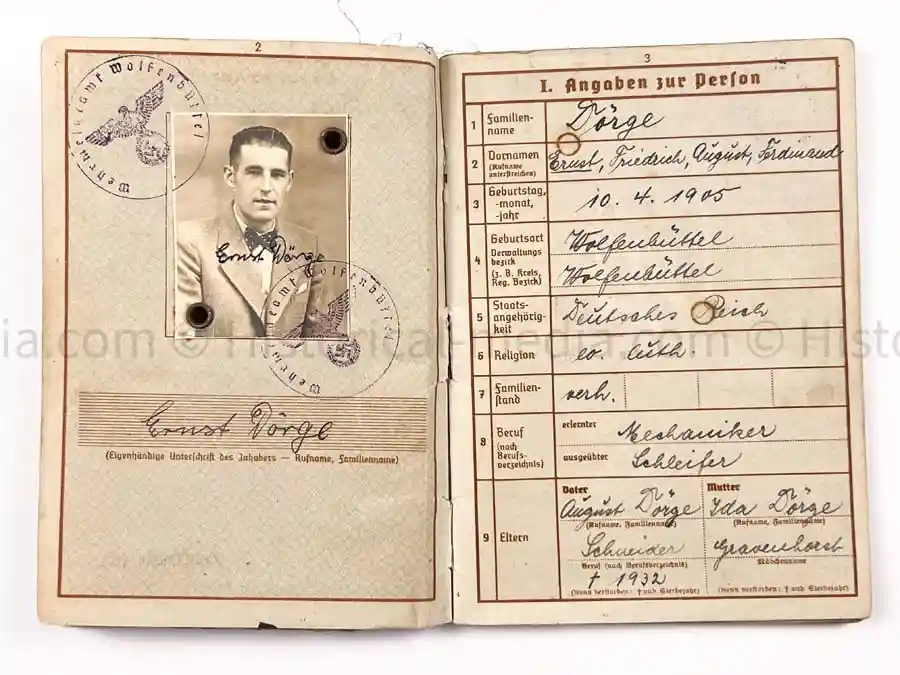 2
Wehrmeldeamt Wolfenbüttel
Ernst Dörge
Wehrmeldeamt Wolfenbüttel
Ernst Dörge
(Eigenhändige Unterschrift des Inhabers — Rufname, Familienname)
3
I. Angaben zur Person
1 Familien-
name
Dörge
2 Vornamen
(Rufname
unterstreichen)
Ernst, Friedrich, August, Ferdinand
3 Geburtstag,
-monat,
-jahr
10. 4. 1905
4 Geburtsort
Verwaltungs
bezirk
(z. B. Kreis,
Reg. Bezirk)
Wolfenbüttel
Wolfenbüttel
5 Staats-
angehörig-
keit
Deutsches Reich
6 Religion
ev. luth.
7 Familien-
stand
verh.
8 Beruf
(nach
Berufs-
verzeichnis)
erlernter
Mechaniker
ausgeübter
Schleifer
9 Eltern
Vater
August Dörge
(Rufname, Familienname)
Schneider
Beruf (nach Berufsverzeichnis)
† 1932
(wenn verstorben: † und Sterbejahr)
Mutter
Ida Dörge
(Rufname, Familienname)
Gravenhorst
Mädchenname
(wenn verstorben: † und Sterbejahr)
ia.com © Historical-media.com © Histo